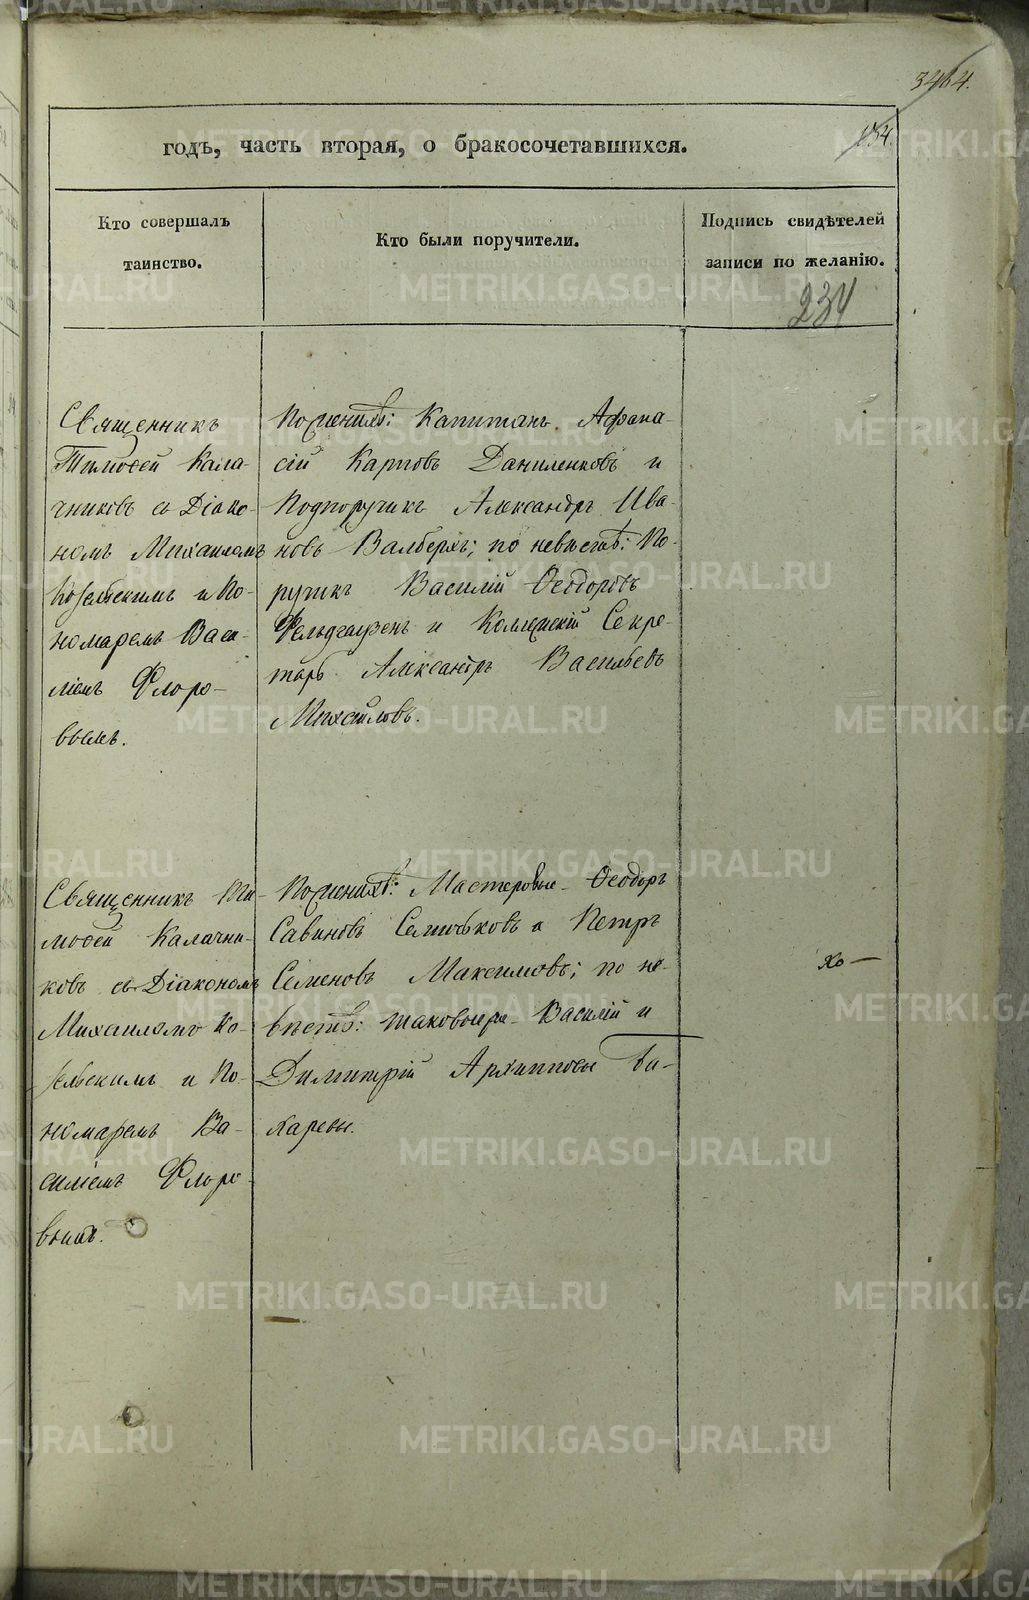 3464.
154.
годъ, часть вторая, о бракосочетавшихся.
Кто совершалъ
таинство.
Кто были поручители.
Подпись свидѣтелей
записи по желанію.
234
Священникъ
Тимофей Кала-
чниковъ съ Діако-
номъ Михаиломъ
Козельскимъ и По-
номаремъ Васи-
ліемъ Флоро-
вымъ.
По женихѣ: Капитанъ Афана-
сій Карповъ Даниленковъ и
Подпоручикъ Александръ Ива-
новъ Валберхъ; по невѣстѣ: По-
ручикъ Василій Ѳеодоровъ
Фельдгаузенъ и Коллежскій Секре-
тарь Александръ Васильевъ
Михайловъ.
Священникъ Ти-
мофей Калачни-
ковъ съ Діакономъ
Михаиломъ Ко-
зельскимъ и По-
номаремъ Ва-
силіемъ Флоро-
вымъ.
По женихѣ: Мастеровые Ѳеодоръ
Савиновъ и Петръ
Семеновъ Максимовъ; по не-
вѣстѣ: таковые же Василій и
Димитрій Архиповы Би-
каревы.
METRIKI.GASO-URAL.RU